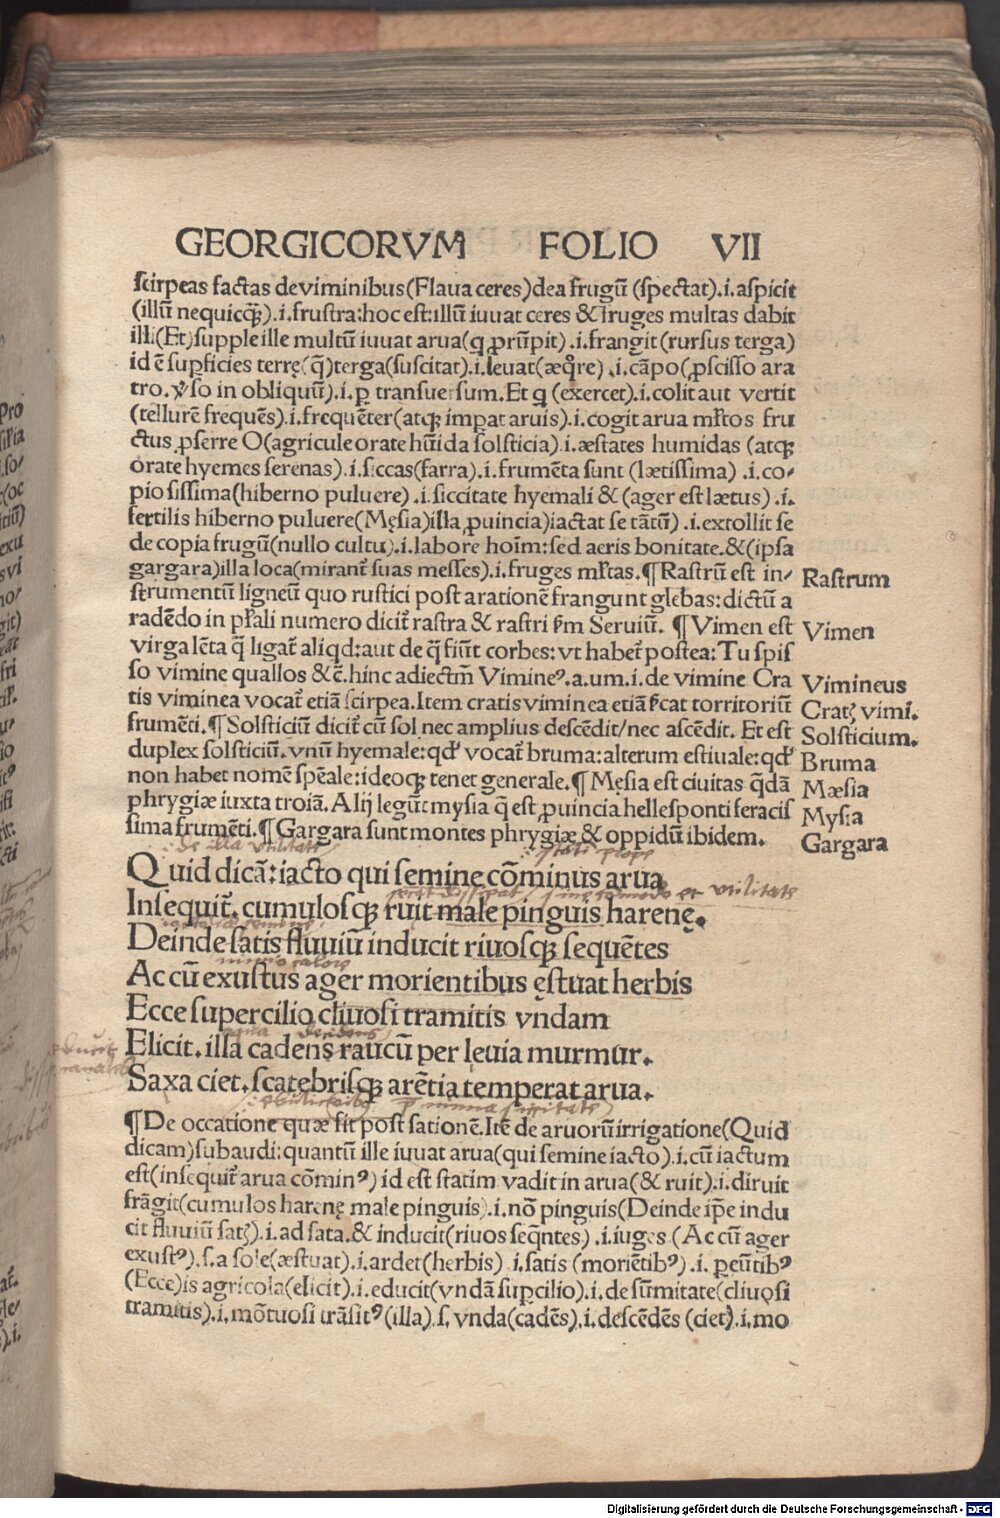 GEORGICORVM FOLIO VII
scirpeas factas deviminibus(Flaua ceres)dea frugũ (spectat).i.aspicit
(illũ nequicq̃).i.frustra:hoc est:illũ iuuat ceres & fruges multas dabit
illi(Et)supple ille multũ iuuat arua(q ꝓrũpit).i.frangit(rursus terga)
id ẽ suꝑficies terrę(q̃)terga(suscitat).i.leuat(æqͦre).i.cãpo(ꝓscisso ara
tro.ꝟso in obliquũ).i.ꝑ transuersum.Et q (exercet).i.colit aut vertit
(tellurẽ frequẽs).i.frequẽter(atqꝫ imꝑat aruis).i.cogit arua ml̃tos fru
ctus ꝓferre O(agricule orate hũida solsticia).i.æstates humidas (atqꝫ
orate hyemes serenas).i.siccas(farra).i.frumẽta sunt (lætissima) .i.co⸗
piosissima(hiberno puluere).i.siccitate hyemali & (ager est lætus).i.
fertilis hiberno puluere(Męsia)illa ꝓuincia)iactat se tãtũ).i.extollit se
de copia frugũ(nullo cultu).i.labore hoĩm:sed aeris bonitate.&(ipsa
gargara)illa loca(mirant᷑ suas messes).i.fruges ml̃tas.¶Rastrũ est in⸗
Rastrum
strumentũ ligneũ quo rustici post arationẽ frangunt glebas:dictũ a
radẽdo in pl̃rali numero dicit᷑ rastra & rastri ẜm Seruiũ. ¶Vimen est
Vimen
virga lẽta q̃ ligat᷑ aliqd:aut de q̃ fiũt corbes:vt habet᷑ postea:Tu spis
so vimine quallos &c̃.hinc adiectm̃ Vimineꝰ.a.um.i.de vimine Cra
Vimineus
tis viminea vocat᷑ etiã scirpea.Item cratis viminea etiã ẜcat torritoriũ
Cratꝭ vimi.
frumẽti.¶Solsticiũ dicit᷑ cũ sol nec amplius descẽdit/nec ascẽdit. Et est
Solsticium.
duplex solsticiũ.vnũ hyemale:qđ vocat᷑ bruma:alterum estiuale:qđ
Bruma
non habet nomẽ spẽale:ideoqꝫ tenet generale.¶Męsia est ciuitas q̃dã
Mæsia
phrygiæ iuxta troiã.Alij legũt mysia q̃ est ꝓuincia hellesponti feracis
Mysia
sima frumẽti.¶Gargara sunt montes phrygiæ & oppidũ ibidem.
Gargara
de illa vtilitate
Quid dicã:iacto qui semine cõminus arua
Insequit᷑.cumulosqꝫ ruit male pinguis harenę.
Deinde satis fluuiũ inducit riuosqꝫ sequẽtes
nimio calore
Ac cũ exustus ager morientibus ęstuat herbis
Ecce supercilio cliuosi tramitis vndam
Elicit.illa cadens raucũ per leuia murmur.
Saxa ciet.scatebrisqꝫ arẽtia temperat arua.
¶De occatione quæ fit post sationẽ.Itẽ de aruorũ irrigatione(Quid
dicam)subaudi:quantũ ille iuuat arua(qui semine iacto).i.cũ iactum
est(insequit᷑ arua cõminꝰ)id est statim vadit in arua(& ruit).i.diruit
frãgit(cumulos harenę male pinguis).i.nõ pinguis(Deinde ip̃e indu
cit fluuiũ satꝭ).i.ad sata.& inducit(riuos seq̃ntes).i.iuges (Ac cũ ager
exustꝰ).s.a sole(æstuat).i.ardet(herbis) .i.satis (moriẽtibꝰ).i. ꝑeũtibꝰ
(Ecce)is agricola(elicit).i.educit(vndã suꝑcilio).i.de sũmitate(cliuosi
tramitis).i.mõtuosi trãsitꝰ(illa).s.vnda(cadẽs).i.descẽdẽs (ciet).i.mo
Digitalisierung gefördert durch die Deutsche Forschungsgemeinschaft - DFG